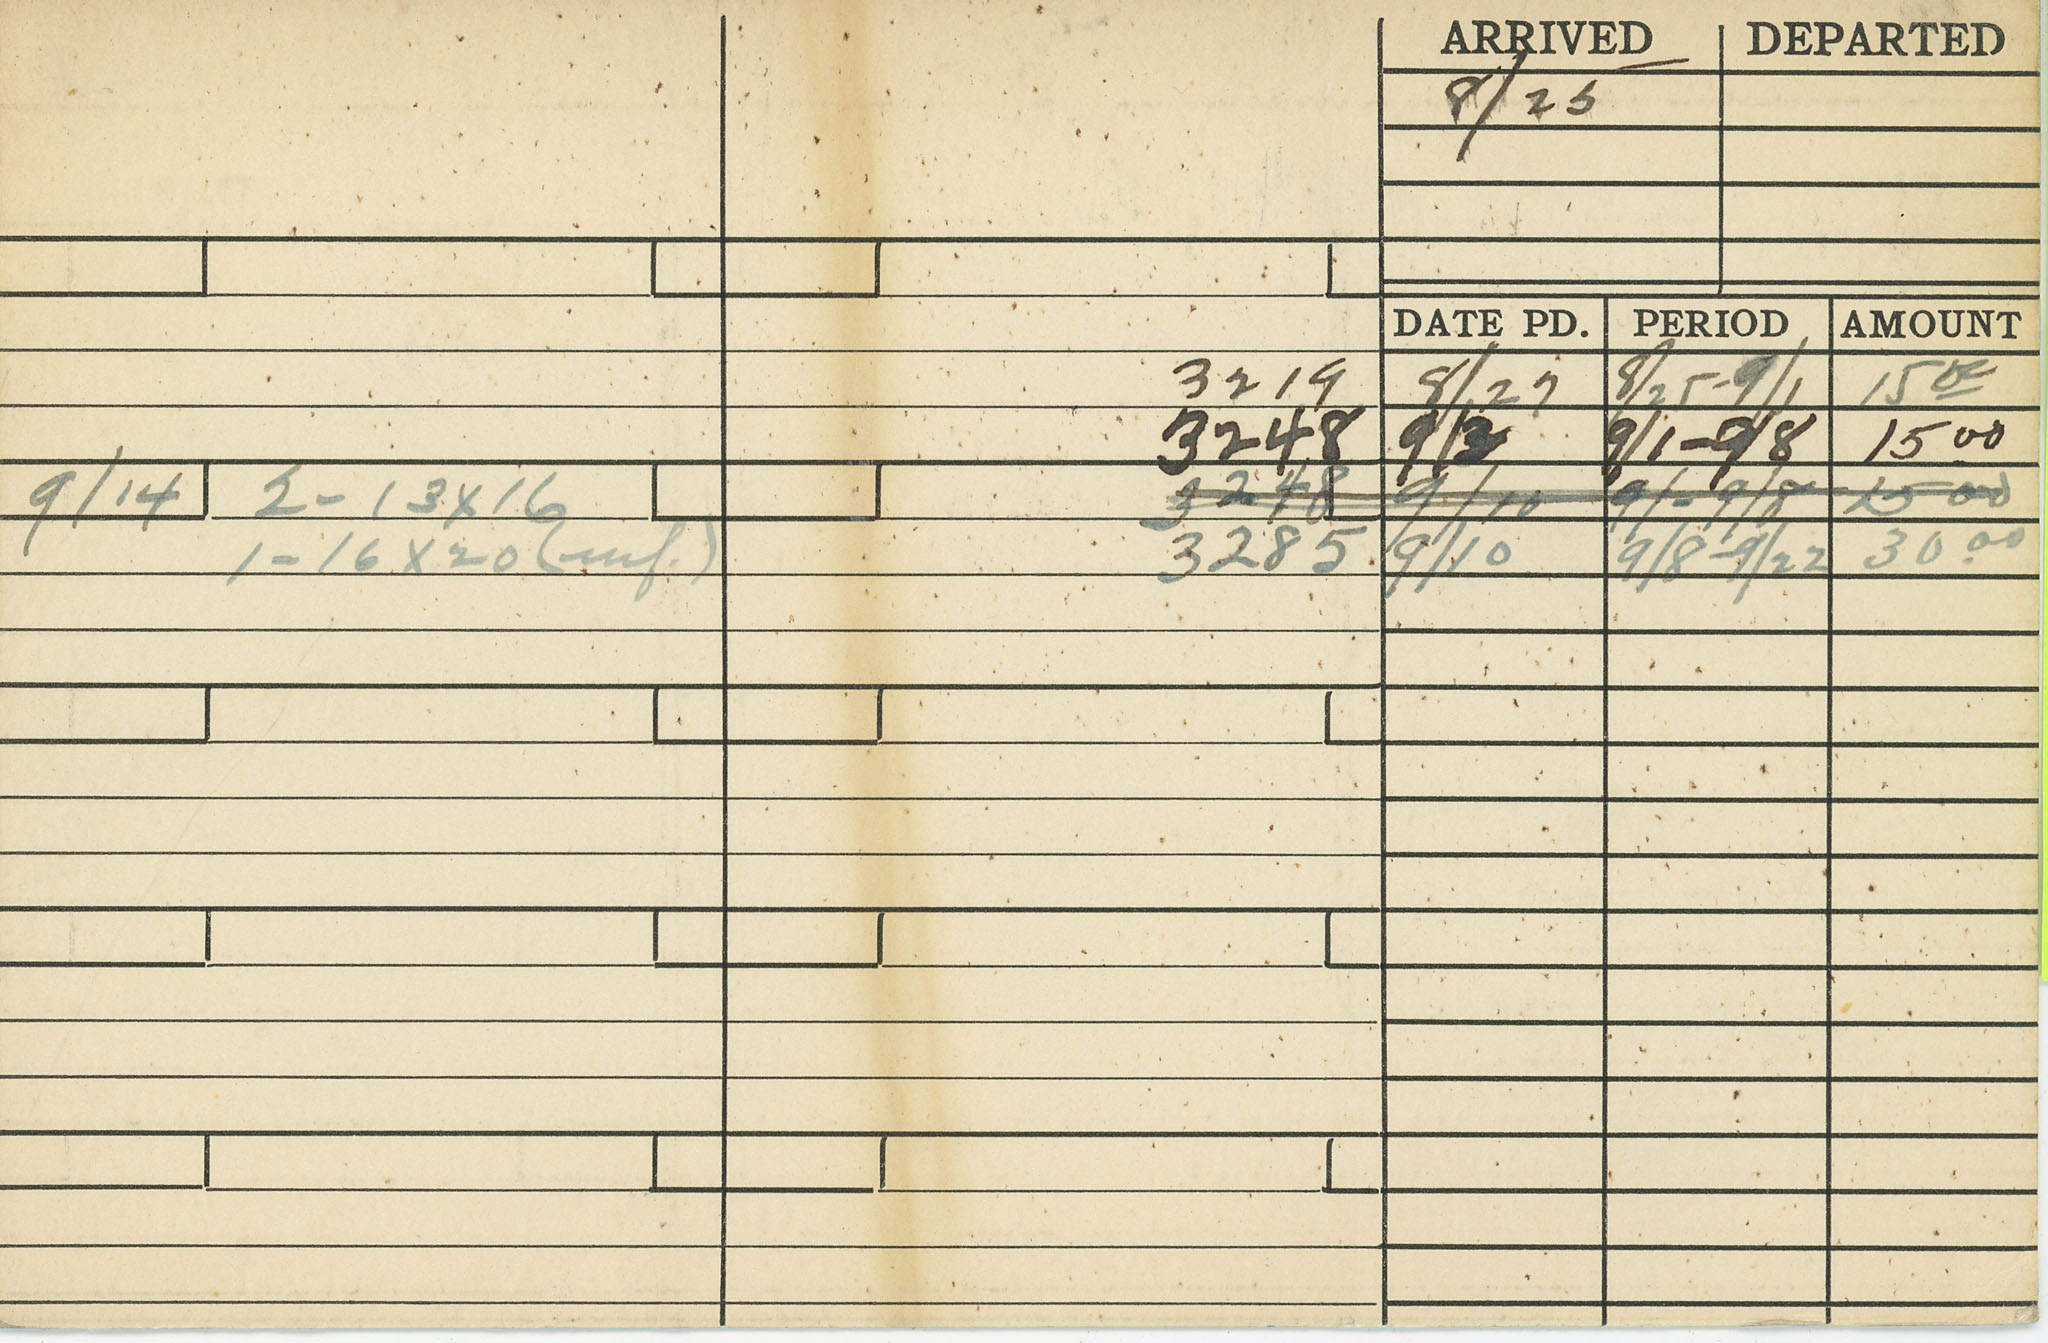 ARRIVED DEPARTED
8/25
DATE PD. PERIOD AMOUNT
3219 8/27 8/25-9/1 15 00
3248 9/3 9/1-9/8 15 00
9/14 2-13x16 3248 9/10 9/1-9/8 15 00
1-16x20 3285 9/10 9/8-9/22 30.00